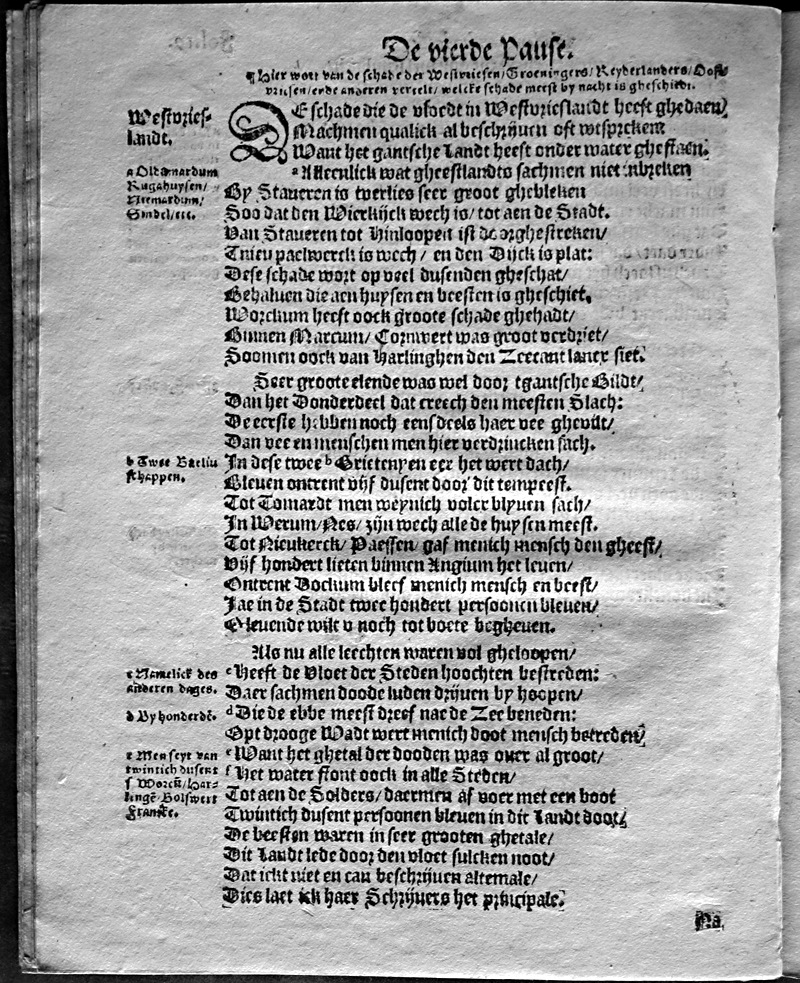 De vierde Pause.
¶ Hier wort van de schade der Westvriesen/ Groeningers/ Reyderlanders/ Oost
vriesen/ ende anderen vertelt/ welcke schade meest by nacht is gheschiedt.
Westvries-
landt.
DE schade die de vloedt in Westvrieslandt heeft ghedaen/
Machmen qualick al beschrijven oft wtspreken:
Want het gantsche Landt heeft onder water ghestaen.
a Oldemardum
Rugahuysen/
Niemardum/
Sindel/etc.
a Alleenlick wat gheestlandts sachmen niet inbreken
By Staveren is tverlies seer groot ghebleken
Soo dat den Wierdijck wech is/ tot aen de Stadt.
Van Staveren tot Hinloopen ist doorghestreken/
Tnieu paelwerck is wech/ en den Dijck is plat:
Dese schade wort op veel dusenden gheschat/
Behalven die aen huysen en beesten is gheschiet.
Worckum heeft oock groote schade ghehadt/
Binnen Marcum/ Cornwert was groot verdriet/
Soomen oock van Harlinghen den Zeecant lancx siet.
Seer groote elende was wel door tgantsche Bildt/
Dan het Donderdeel dat creech den meesten Slach:
De eerste hebben noch eensdeels haer vee ghevilt/
Dan vee en menschen men hier verdrincken sach.
b Twee Bailiu
schappen.
In dese twee b Grietenyen eer het wert dach/
Bleven ontrent vijf dusent door dit tempeest.
Tot Tomardt men weynich volcx blyven sach/
In Werum/ Nes/ zijn wech alle de huysen meest.
Tot Nieukerck/ Paessen/ gaf menich mensch den gheest/
Vijf hondert lieten binnen Angium het leven/
Ontrent Dockum bleef menich mensch en beest/
Jae in de Stadt twee hondert persoonen bleven/
O levende wilt v noch tot boete begheven.
Als nu alle leechten waren vol gheloopen/
c Namelick des
anderen dages.
c Heeft de Vloet der Steden hoochten bestreden:
Daer sachmen doode luden drijven by hoopen/
d By honderdē.
d Die de ebbe meest dreef nae de Zee beneden:
Opt drooge Wadt wert menich doot mensch betreden/
e Men seyt van
twintich dusent
e Want het ghetal der dooden was over al groot/
f Worcū/ Har-
lingē/ Bolswert
Franike.
f Het water stont oock in alle Steden/
Tot aen de Solders/ daermen af voer met een boot
Twintich dusent persoonen bleven in dit Landt doot/
De beesten waren in seer grooten ghetale/
Dit Landt lede door den vloet sulcken noot/
Dat ickt niet en can beschrijven altemale/
Dies laet ick haer Schrijvers het principale.
Na